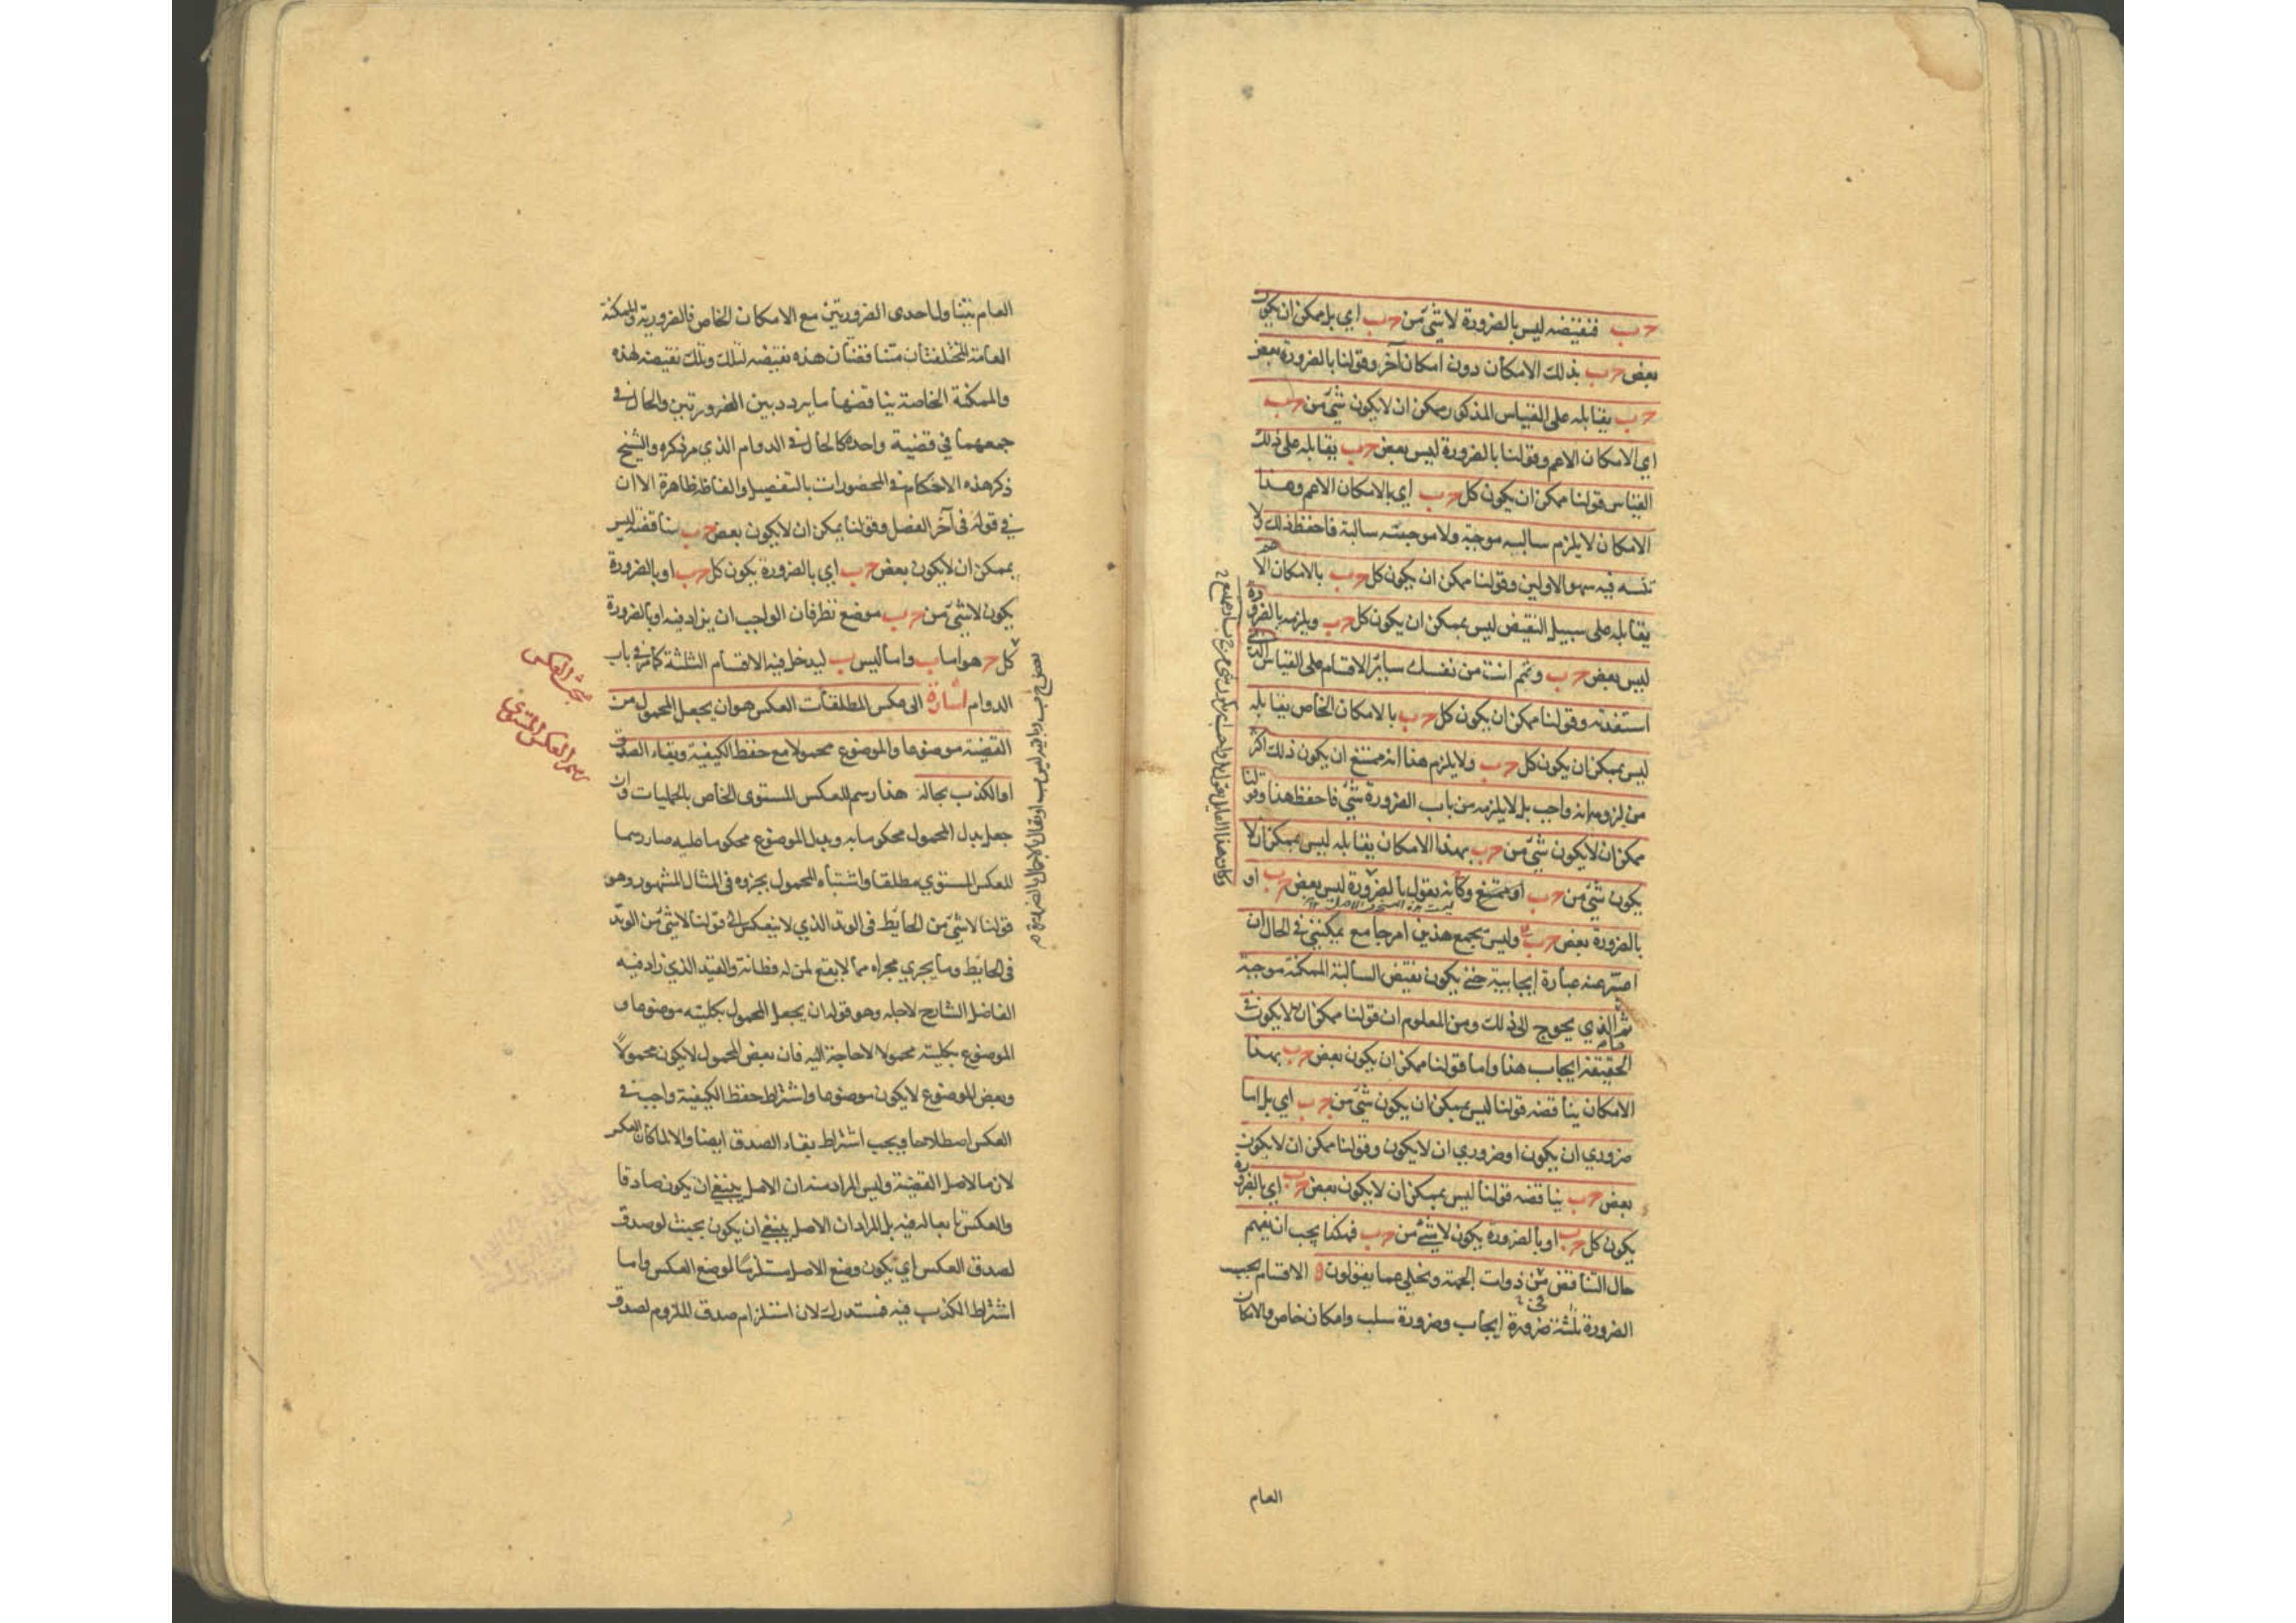 حـ ب فنقيضه ليس بالضرورة لا شئ من حـ ب اي بل ممكن ان يكون
بعض حـ ب بذلك الامكان دون امكان آخر وقولنا بالضرورة بعض
حـ ب يقابله على القياس المذكور ممكن ان لا يكون شئ من حـ ب
اي الامكان الاعم وقولنا بالضرورة ليس بعض حـ ب يقابله على ذلك
القياس قولنا ممكن ان يكون كل حـ ب اي بالامكان الاعم وهذا
الامكان لا يلزم سالبه موجبة ولا موجبته سالبة فاحفظ ذلك ولا
تنسه فيه سهو الاولين وقولنا ممكن ان يكون كل حـ ب بالامكان الاعم
يقابله على سبيل النقيض ليس بممكن ان يكون كل حـ ب ويلزمه بالضرورة
ليس بعض حـ ب وتمم انت من نفسك سائر الاقسام على القياس الذي
استفدته وقولنا ممكن ان يكون كل حـ ب بالامكان الخاص يقابله
ليس بممكن ان يكون كل حـ ب ولا يلزم هذا انه ممتنع ان يكون ذلك اكثر
من لزومه انه واجب بل لا يلزمه من باب الضرورة شئ فاحفظ هذا وقولنا
ممكن ان لا يكون شئ من حـ ب بهذا الامكان يقابله ليس بممكن ان لا
يكون شئ من حـ ب او ممتنع وكأنه يقول بالضرورة ليس بعض حـ ب او
بالضرورة بعض حـ ب وليس يجمع هذين امر جامع يمكنني في الحال ان
اعبر عنه عبارة ايجابية حتى يكون نقيض السالبة الممكنة موجبة
ثم الذي يحوج الى ذلك ومن المعلوم ان قولنا ممكن ان لا يكون في
الحقيقة ايجاب هذا واما قولنا ممكن ان يكون بعض حـ ب بهذا
الامكان يناقضه قولنا ليس بممكن ان يكون شئ من حـ ب اي بل اما
ضروري ان يكون او ضروري ان لا يكون وقولنا ممكن ان لا يكون
بعض حـ ب يناقضه قولنا ليس بممكن ان لا يكون بعض حـ ب اي بالضرورة
يكون كل حـ ب او بالضرورة يكون لا شئ من حـ ب فهكذا يجب ان يفهم
حال التناقض من ذوات الجهة وتخلى عما يقولون الاقسام بحسب
الضرورة ثلثة ضرورة ايجاب وضرورة سلب وامكان خاص والامكان
العام
العام يتناول احدى الضرورتين مع الامكان الخاص فالضرورية والممكنة
العامة المختلفتان متناقضتان هذه نقيضه لتلك وتلك نقيضه لهذه
والممكنة الخاصة يناقضها ما يردد بين الضرورتين والحال في
جمعهما في قضية واحدة كالحال في الدوام الذي مر ذكره والشيخ
ذكر هذه الاحكام في المحصورات بالتفصيل والفاظه ظاهرة الا ان
في قوله في آخر الفصل وقولنا يمكن ان لا يكون بعض حـ ب يناقضه ليس
بممكن ان لا يكون بعض حـ ب اي بالضرورة يكون كل حـ ب او بالضرورة
يكون لا شئ من حـ ب موضع نظر فان الواجب ان يزاد فيه او بالضرورة
كل حـ هو اما ب واما ليس ب ليدخل فيه الاقسام الثلثة كما مر في باب
الدوام اشارة الى عكس المطلقات العكس هو ان يجعل المحمول من
القضية موضوعا والموضوع محمولا مع حفظ الكيفية وبقاء الصدق
او الكذب بحاله هذا رسم للعكس المستوي الخاص بالحمليات وان
جعل بدل المحمول محكوما به وبدل الموضوع محكوما عليه صار رسما
للعكس المستوي مطلقا واشتباه المحمول بجزوه في المثال المشهور وهو
قولنا لا شئ من الحايط في الوتد الذي لا ينعكس الى قولنا لا شئ من الوتد
في الحايط وما يجري مجراه مما لا يقع لمن له فطانة والقيد الذي زاد فيه
الفاضل الشارح لاجله وهو قوله ان يجعل المحمول بكليته موضوعا و
الموضوع بكليته محمولا لا حاجة اليه فان بعض المحمول لا يكون محمولاً
وبعض الموضوع لا يكون موضوعا واشتراط حفظ الكيفية واجب في
العكس اصطلاحا ويجب اشتراط بقاء الصدق ايضا والا لما كان العكس
لازما لاصل القضية وليس المراد منه ان الاصل ينبغي ان يكون صادقا
والعكس تابعا له فيه بل المراد ان الاصل ينبغي ان يكون بحيث لو صدق
لصدق العكس اي يكون وضع الاصل مستلزما لوضع العكس واما
اشتراط الكذب فيه فمستدرك لان استلزام صدق الملزوم لصدق
مبحث العكس
رسم العكس المستوي